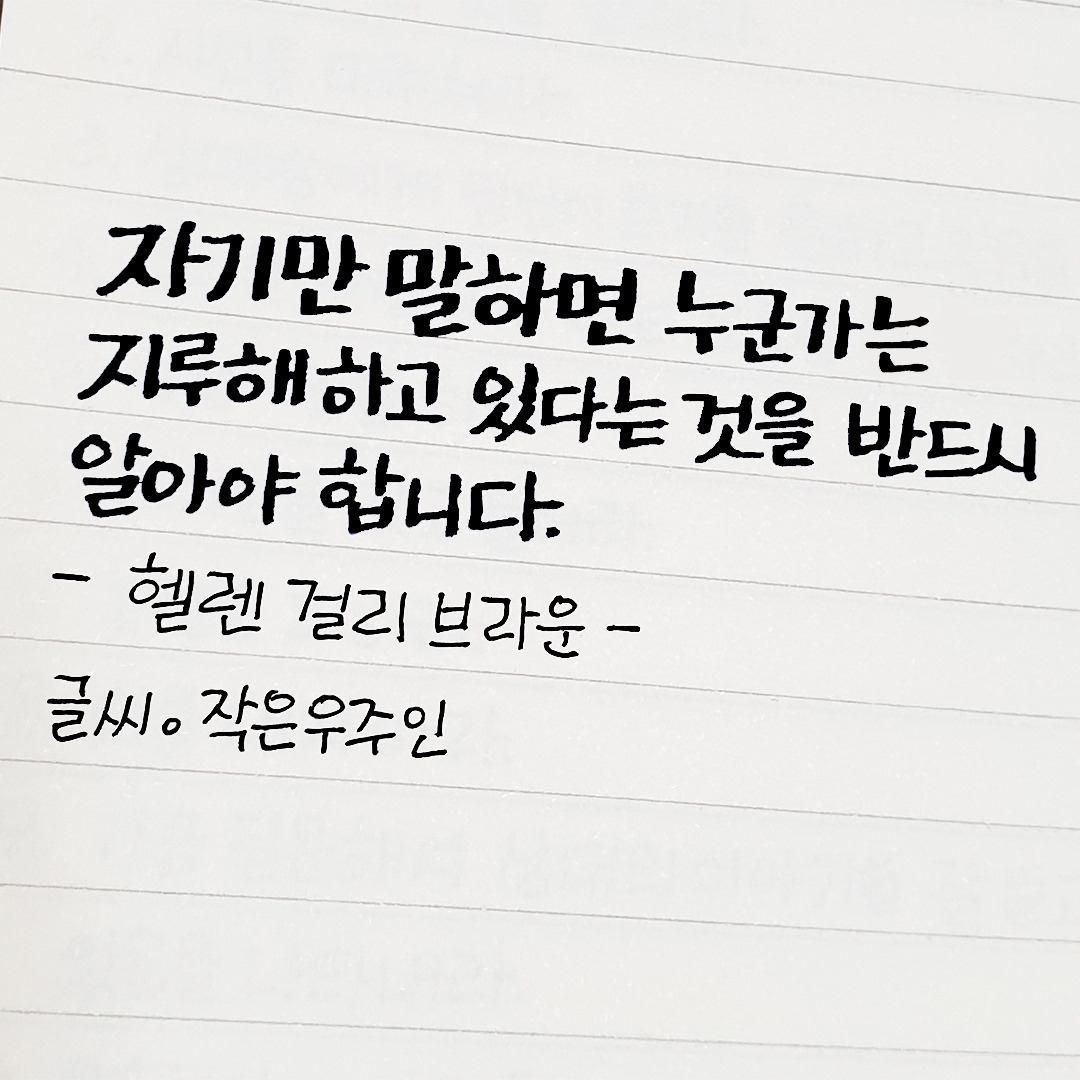 자기만 말하면 누군가는
지루해하고 있다는 것을 반드시
알아야 합니다.
- 헬렌 걸리 브라운 -
글씨。작은우주인